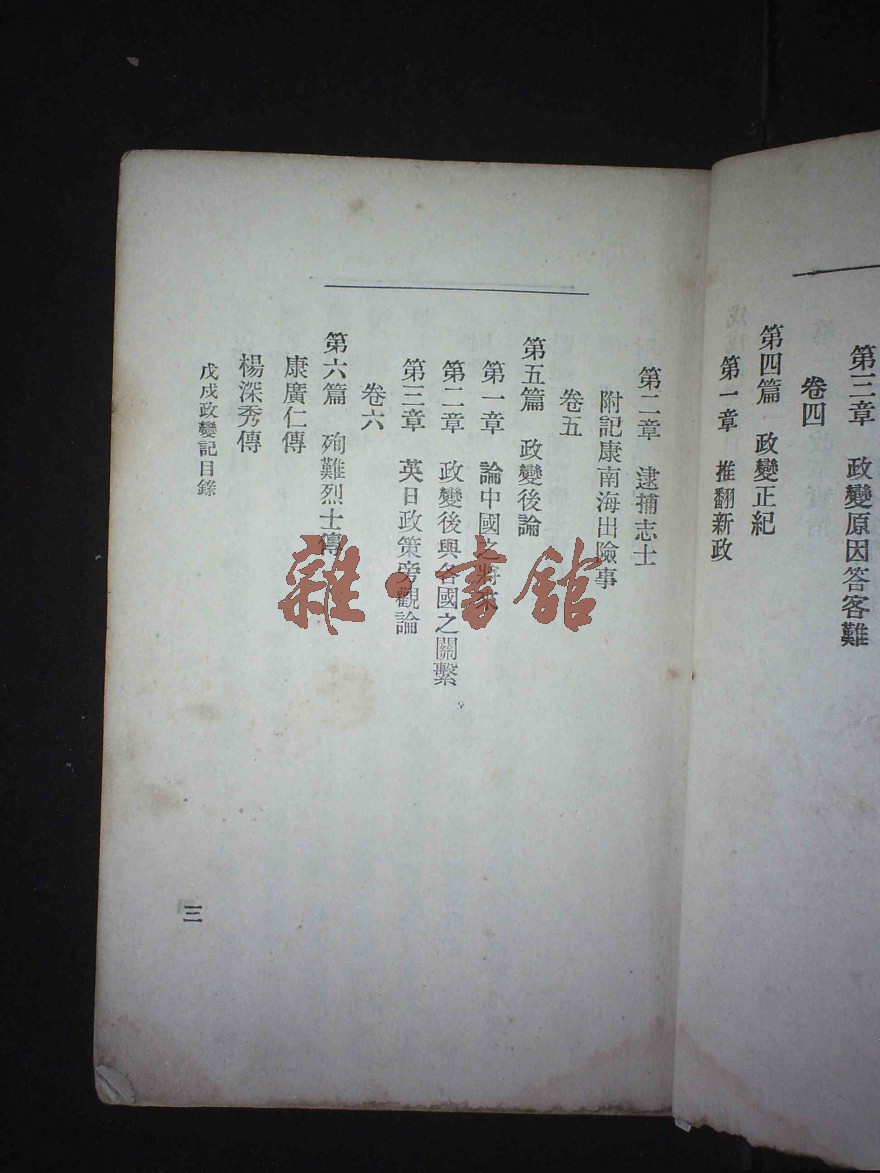 第三章 政變原因答客難
卷四
第四篇 政變正紀
第一章 推翻新政
第二章 逮捕志士
附記康南海出險事
卷五
第五篇 政變後論
第一章 論中國之將來
第二章 政變後與各國之關繫
第三章 英日政策旁觀論
卷六
第六篇 殉難烈士傳
康廣仁傳
楊深秀傳
戊戌政變記目錄
三
雜·書館